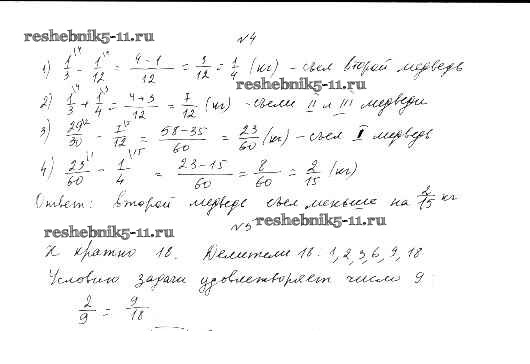 reshebnik5-11.ru
№4
1) 1/3 - 1/12 = 4-1/12 = 3/12 = 1/4 (кг) - съел второй медведь
reshebnik5-11.ru
2) 1/3 + 1/4 = 4+3/12 = 7/12 (кг) - съели II и III медведи
3) 29/30 - 7/12 = 58-35/60 = 23/60 (кг) - съел I медведь
4) 23/60 - 1/4 = 23-15/60 = 8/60 = 2/15 (кг)
Ответ: второй медведь съел меньше на 2/15 кг
№5
reshebnik5-11.ru
reshebnik5-11.ru
X кратно 18. Делители 18: 1, 2, 3, 6, 9, 18
Условию задачи удовлетворяет число 9:
2/9 = 9/18